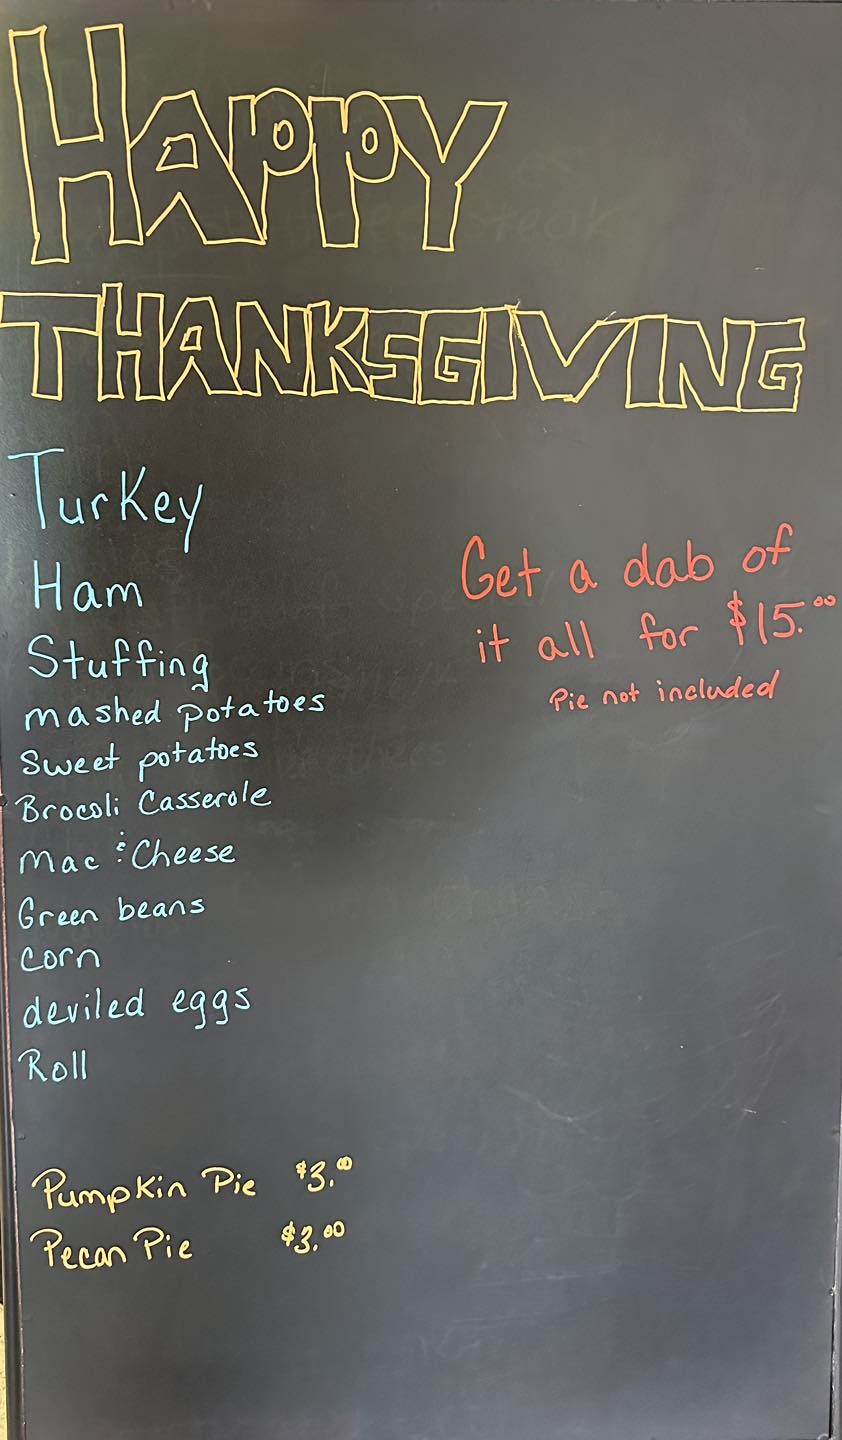 HAPPY
THANKSGIVING
Turkey
Ham
Stuffing
mashed potatoes
Sweet potatoes
Brocoli Casserole
Mac & Cheese
Green beans
Corn
deviled eggs
Roll
Get a dab of
it all for $15.00
Pie not included
Pumpkin Pie $3.00
Pecan Pie $3.00